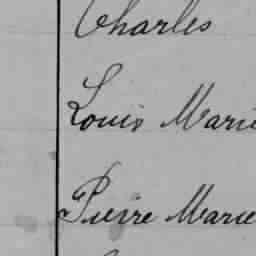 Charles
Louis Marie
Pierre Marie